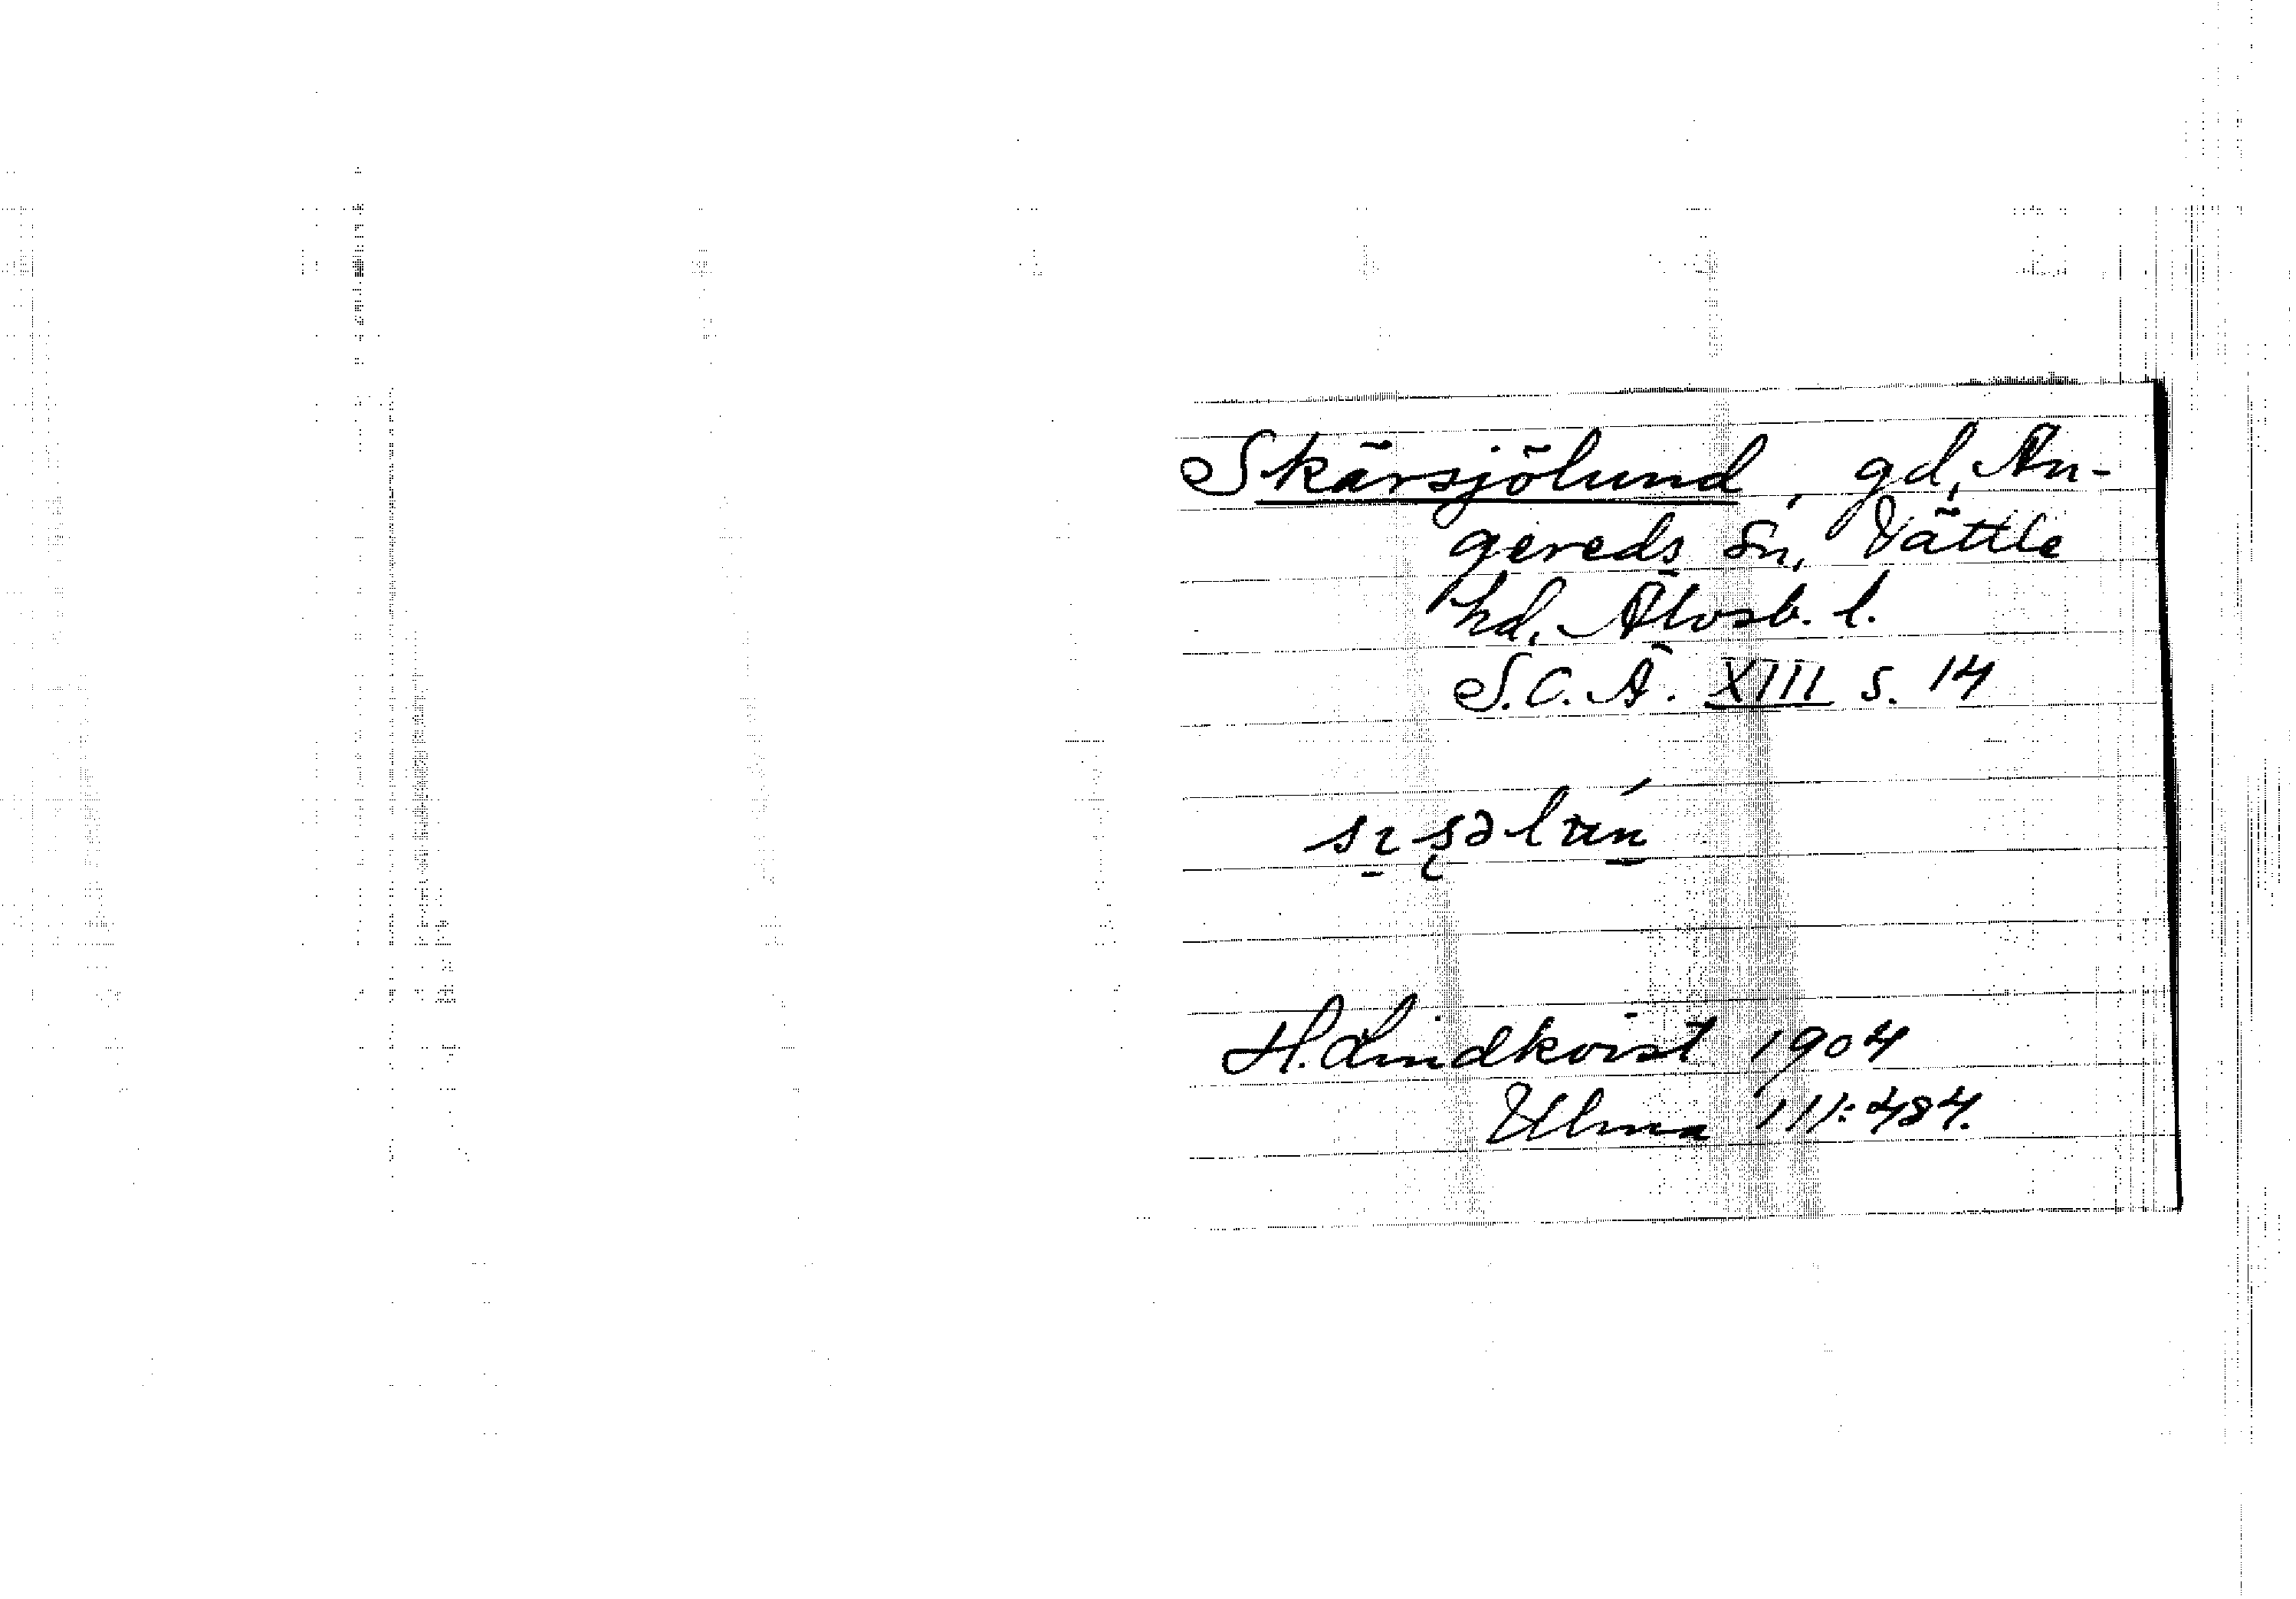 Skärsjölund, gd, An-
gereds sn, Vättle
hd, Älvsb. l.
S.O.Ä. XIII s. 14
H. Lindkvist 1904
Ulma 111:484.